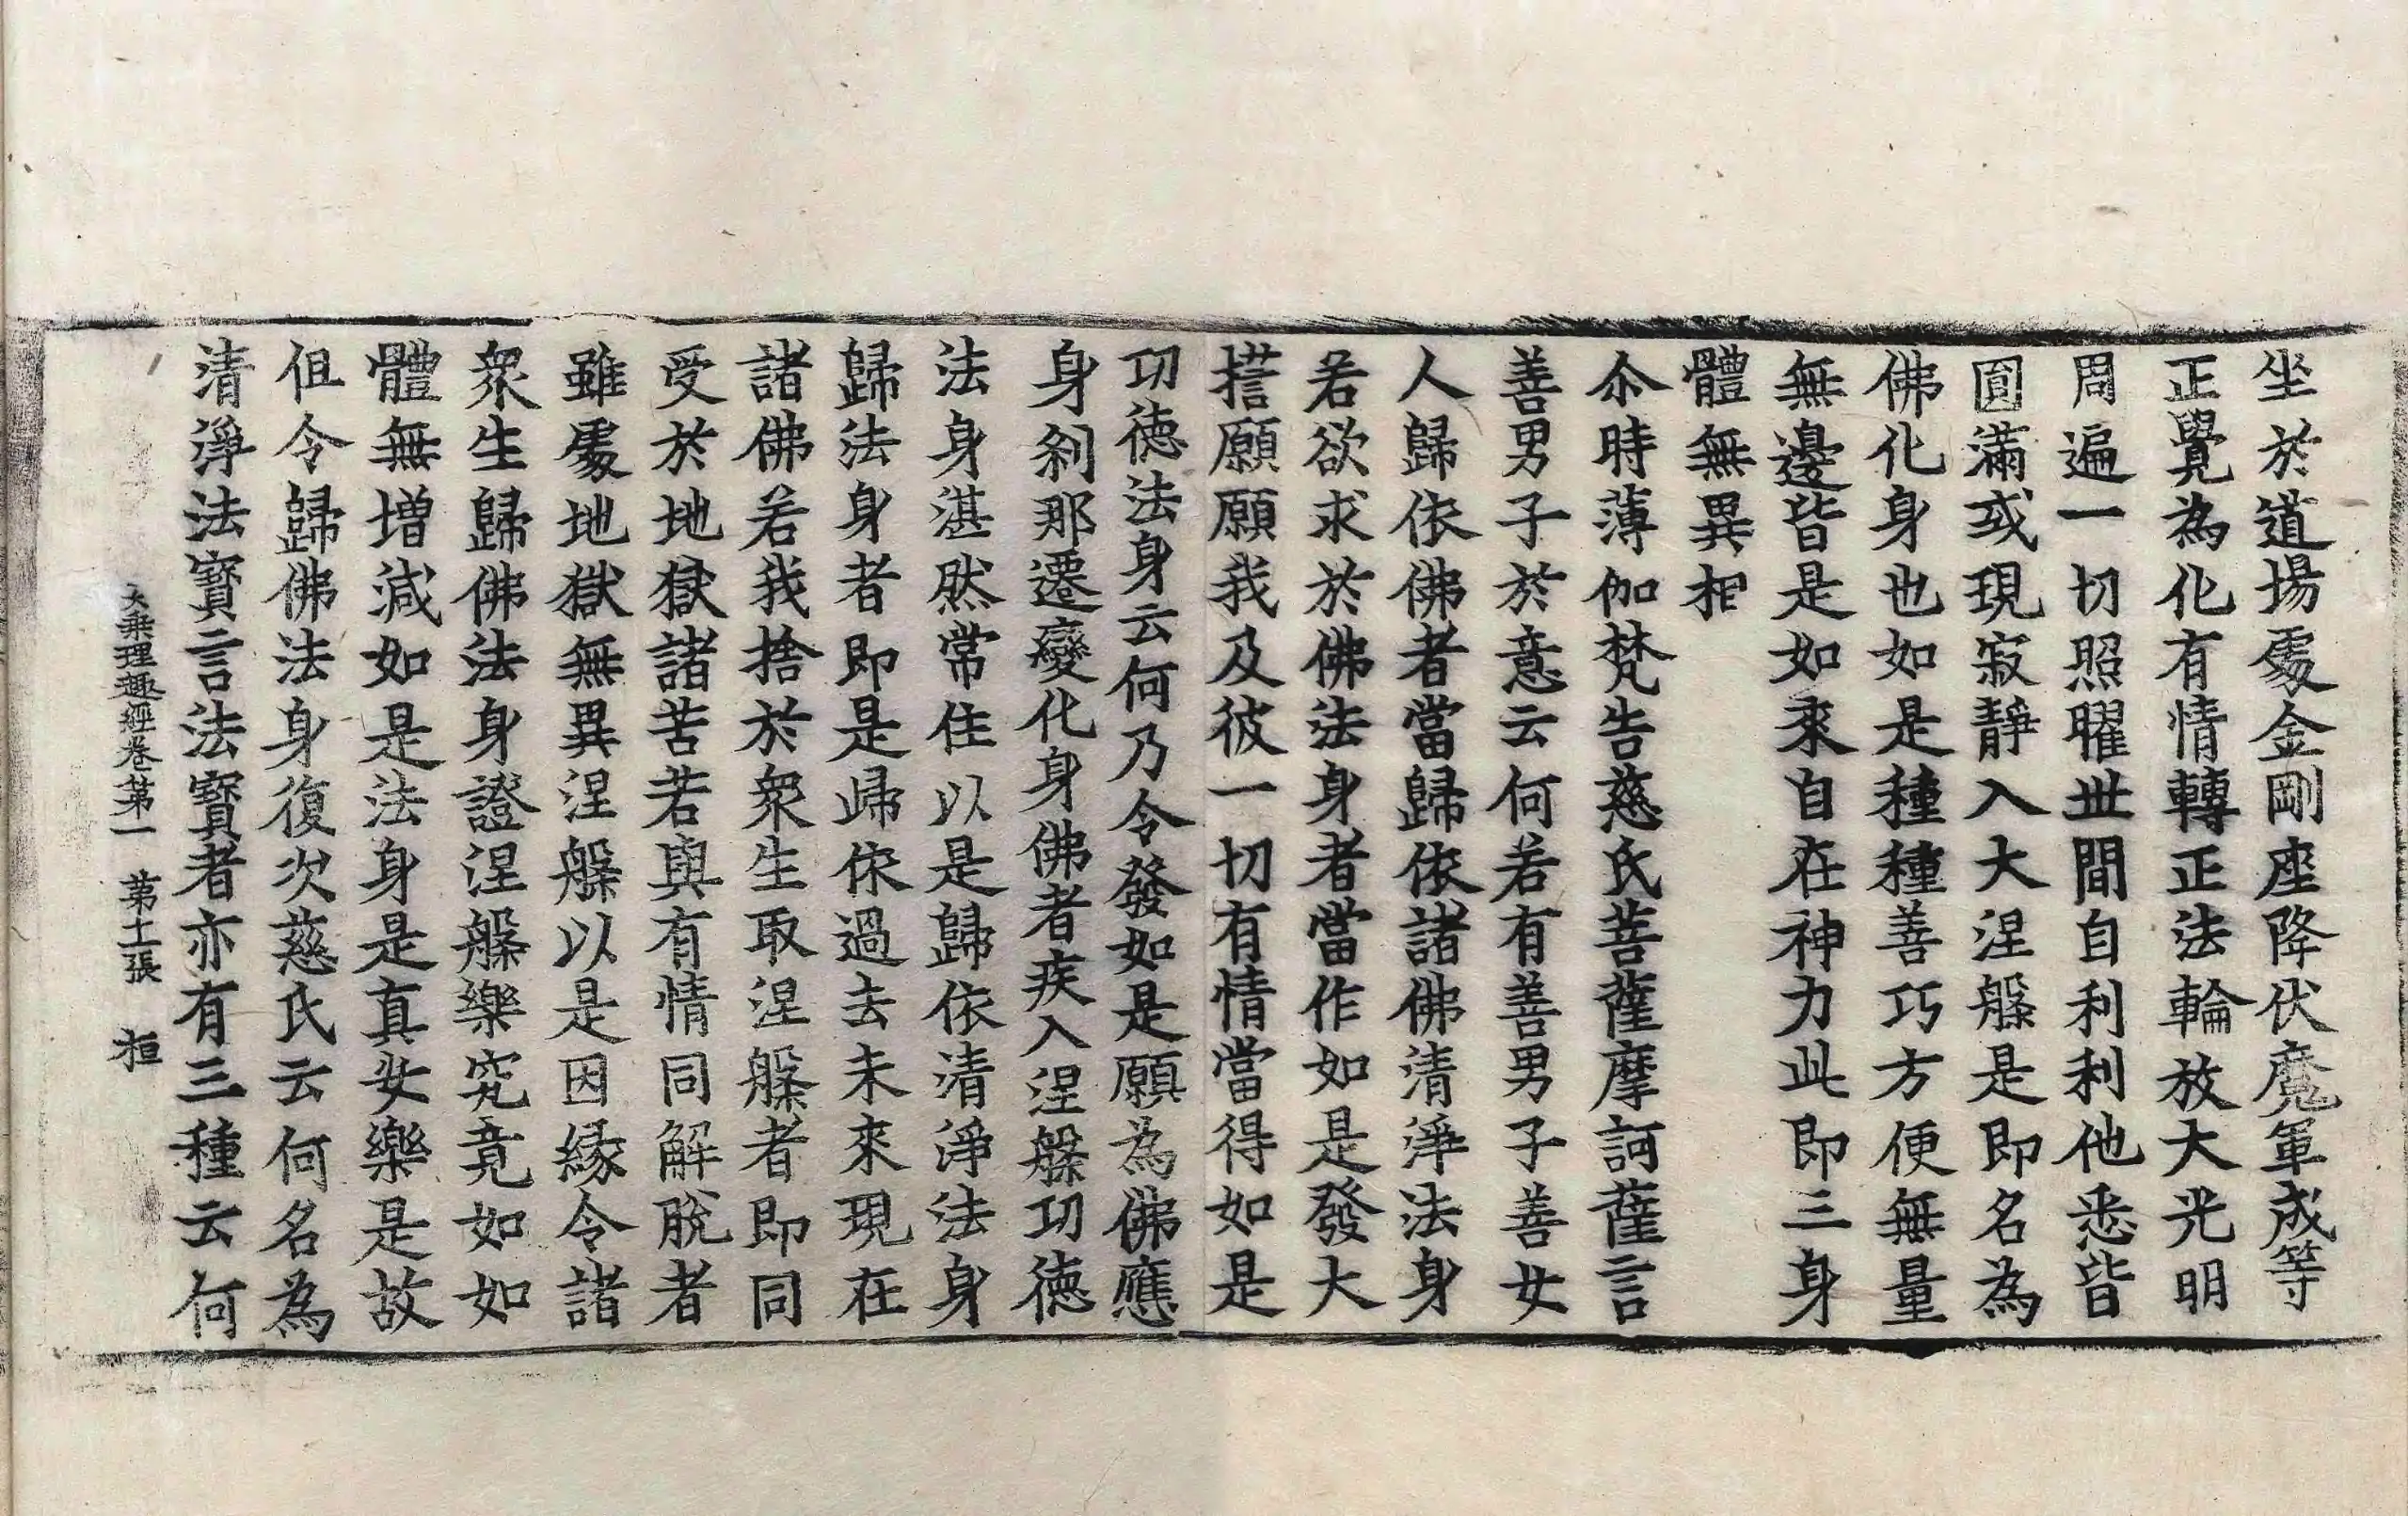 坐於道場處金剛座降伏魔軍成等
正覺為化有情轉正法輪放大光明
周遍一切照曜世間自利利他悉皆
圓滿或現寂靜入大涅槃是即名為
佛化身也如是種種善巧方便無量
無邊皆是如來自在神力此即三身
體無異相
尒時薄伽梵告慈氏菩薩摩訶薩言
善男子於意云何若有善男子善女
人歸依佛者當歸依諸佛清淨法身
若欲求於佛法身者當作如是發大
誓願願我及彼一切有情當得如是
功德法身云何乃令發如是願為佛應
身剎那遷變化身佛者疾入涅槃功德
法身湛然常住以是歸依清淨法身
歸法身者即是歸依過去未來現在
諸佛若我捨於衆生取涅槃者即同
受於地獄諸苦若與有情同解脫者
雖處地獄無異涅槃以是因緣令諸
衆生歸佛法身證涅槃樂究竟如如
體無增減如是法身是真安樂是故
但令歸佛法身復次慈氏云何名為
清淨法寶言法寶者亦有三種云何
大乘理趣經卷第一 第十一張 桓